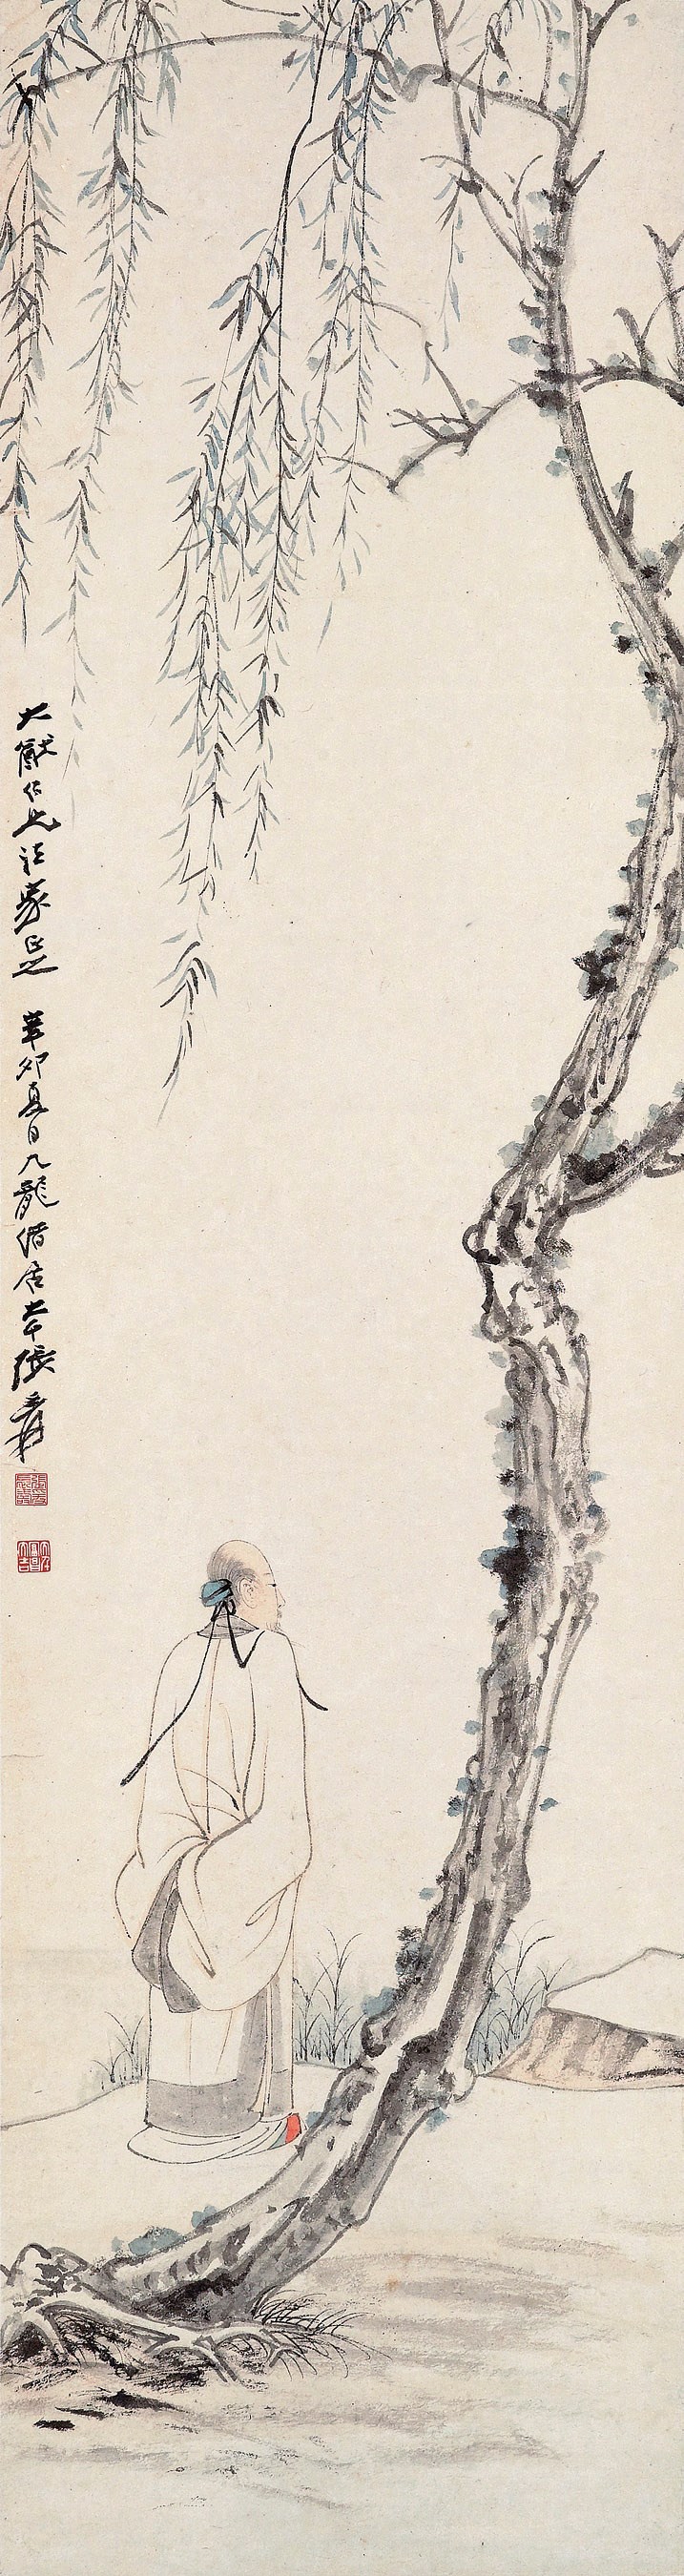 大猷仁兄法家正之 辛卯夏日九龍借居 大千張爰